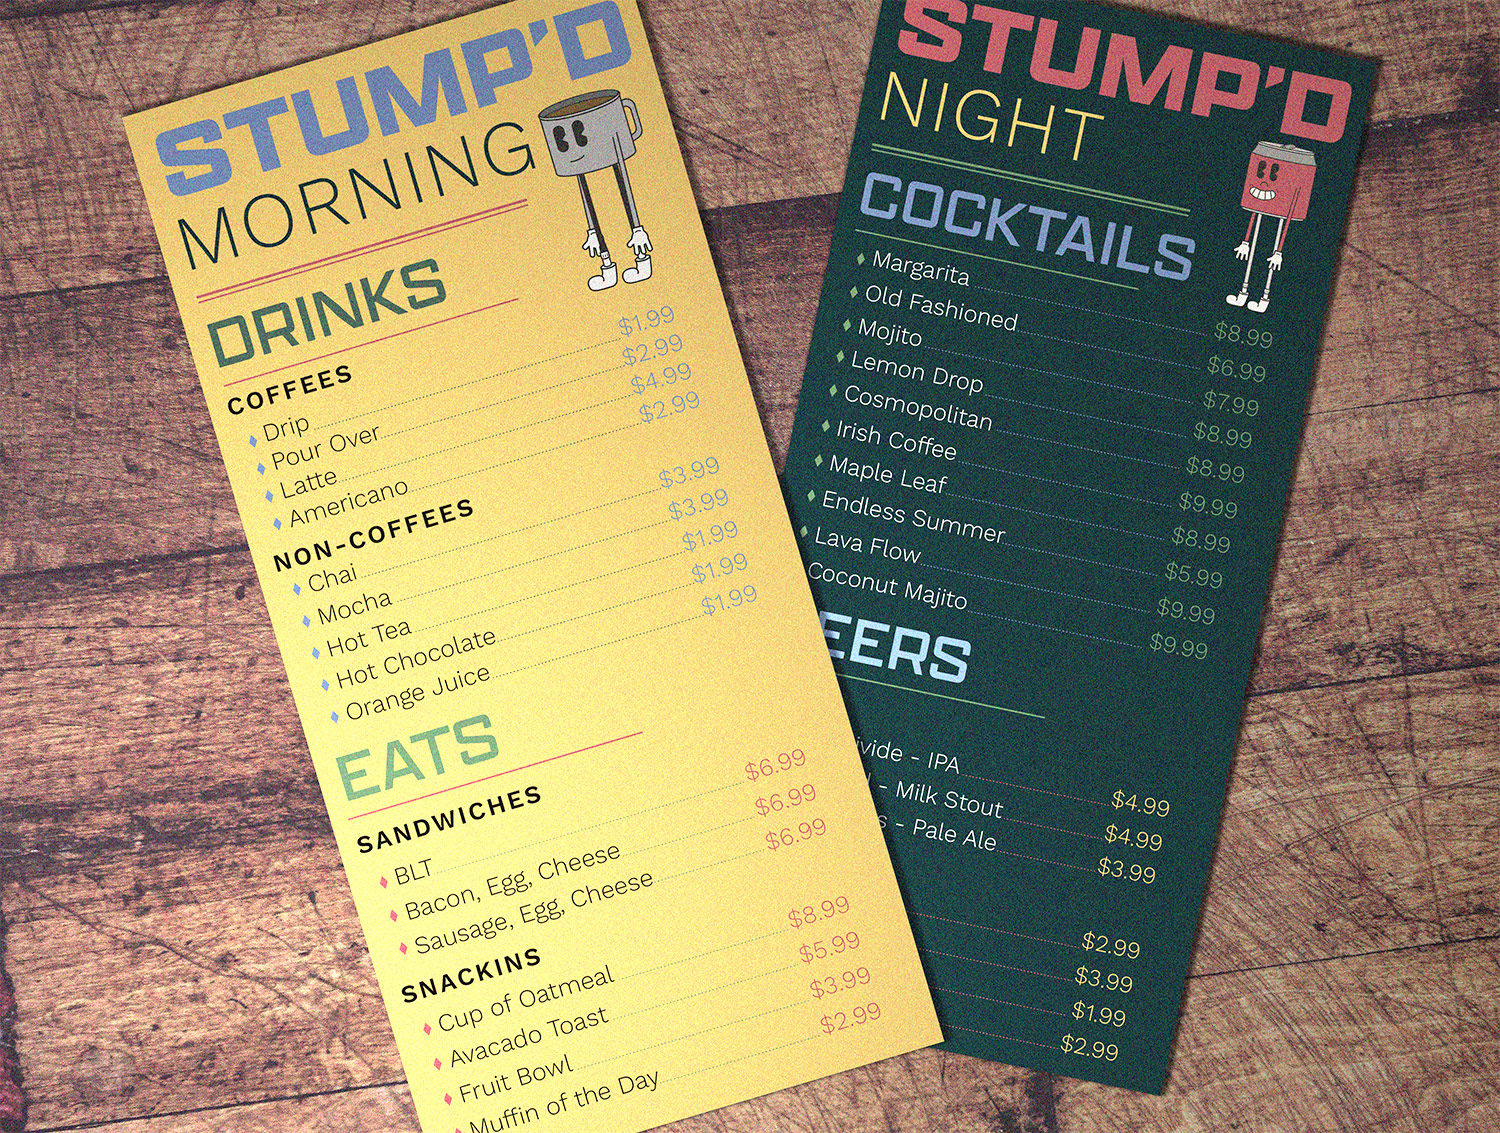 STUMP'D
MORNING
DRINKS
COFFEES
Drip $1.99
Pour Over $2.99
Latte $4.99
Americano $2.99
NON-COFFEES
Chai $3.99
Mocha $3.99
Hot Tea $1.99
Hot Chocolate $1.99
Orange Juice $1.99
EATS
SANDWICHES
BLT $6.99
Bacon, Egg, Cheese $6.99
Sausage, Egg, Cheese $6.99
SNACKINS
Cup of Oatmeal $8.99
Avacado Toast $5.99
Fruit Bowl $3.99
Muffin of the Day $2.99
STUMP'D
NIGHT
COCKTAILS
Margarita $8.99
Old Fashioned $6.99
Mojito $7.99
Lemon Drop $8.99
Cosmopolitan $8.99
Irish Coffee $9.99
Maple Leaf $8.99
Endless Summer $5.99
Lava Flow $9.99
Coconut Majito $9.99
EERS
ivide - IPA $4.99
- Milk Stout $4.99
s - Pale Ale $3.99
$2.99
$3.99
$1.99
$2.99